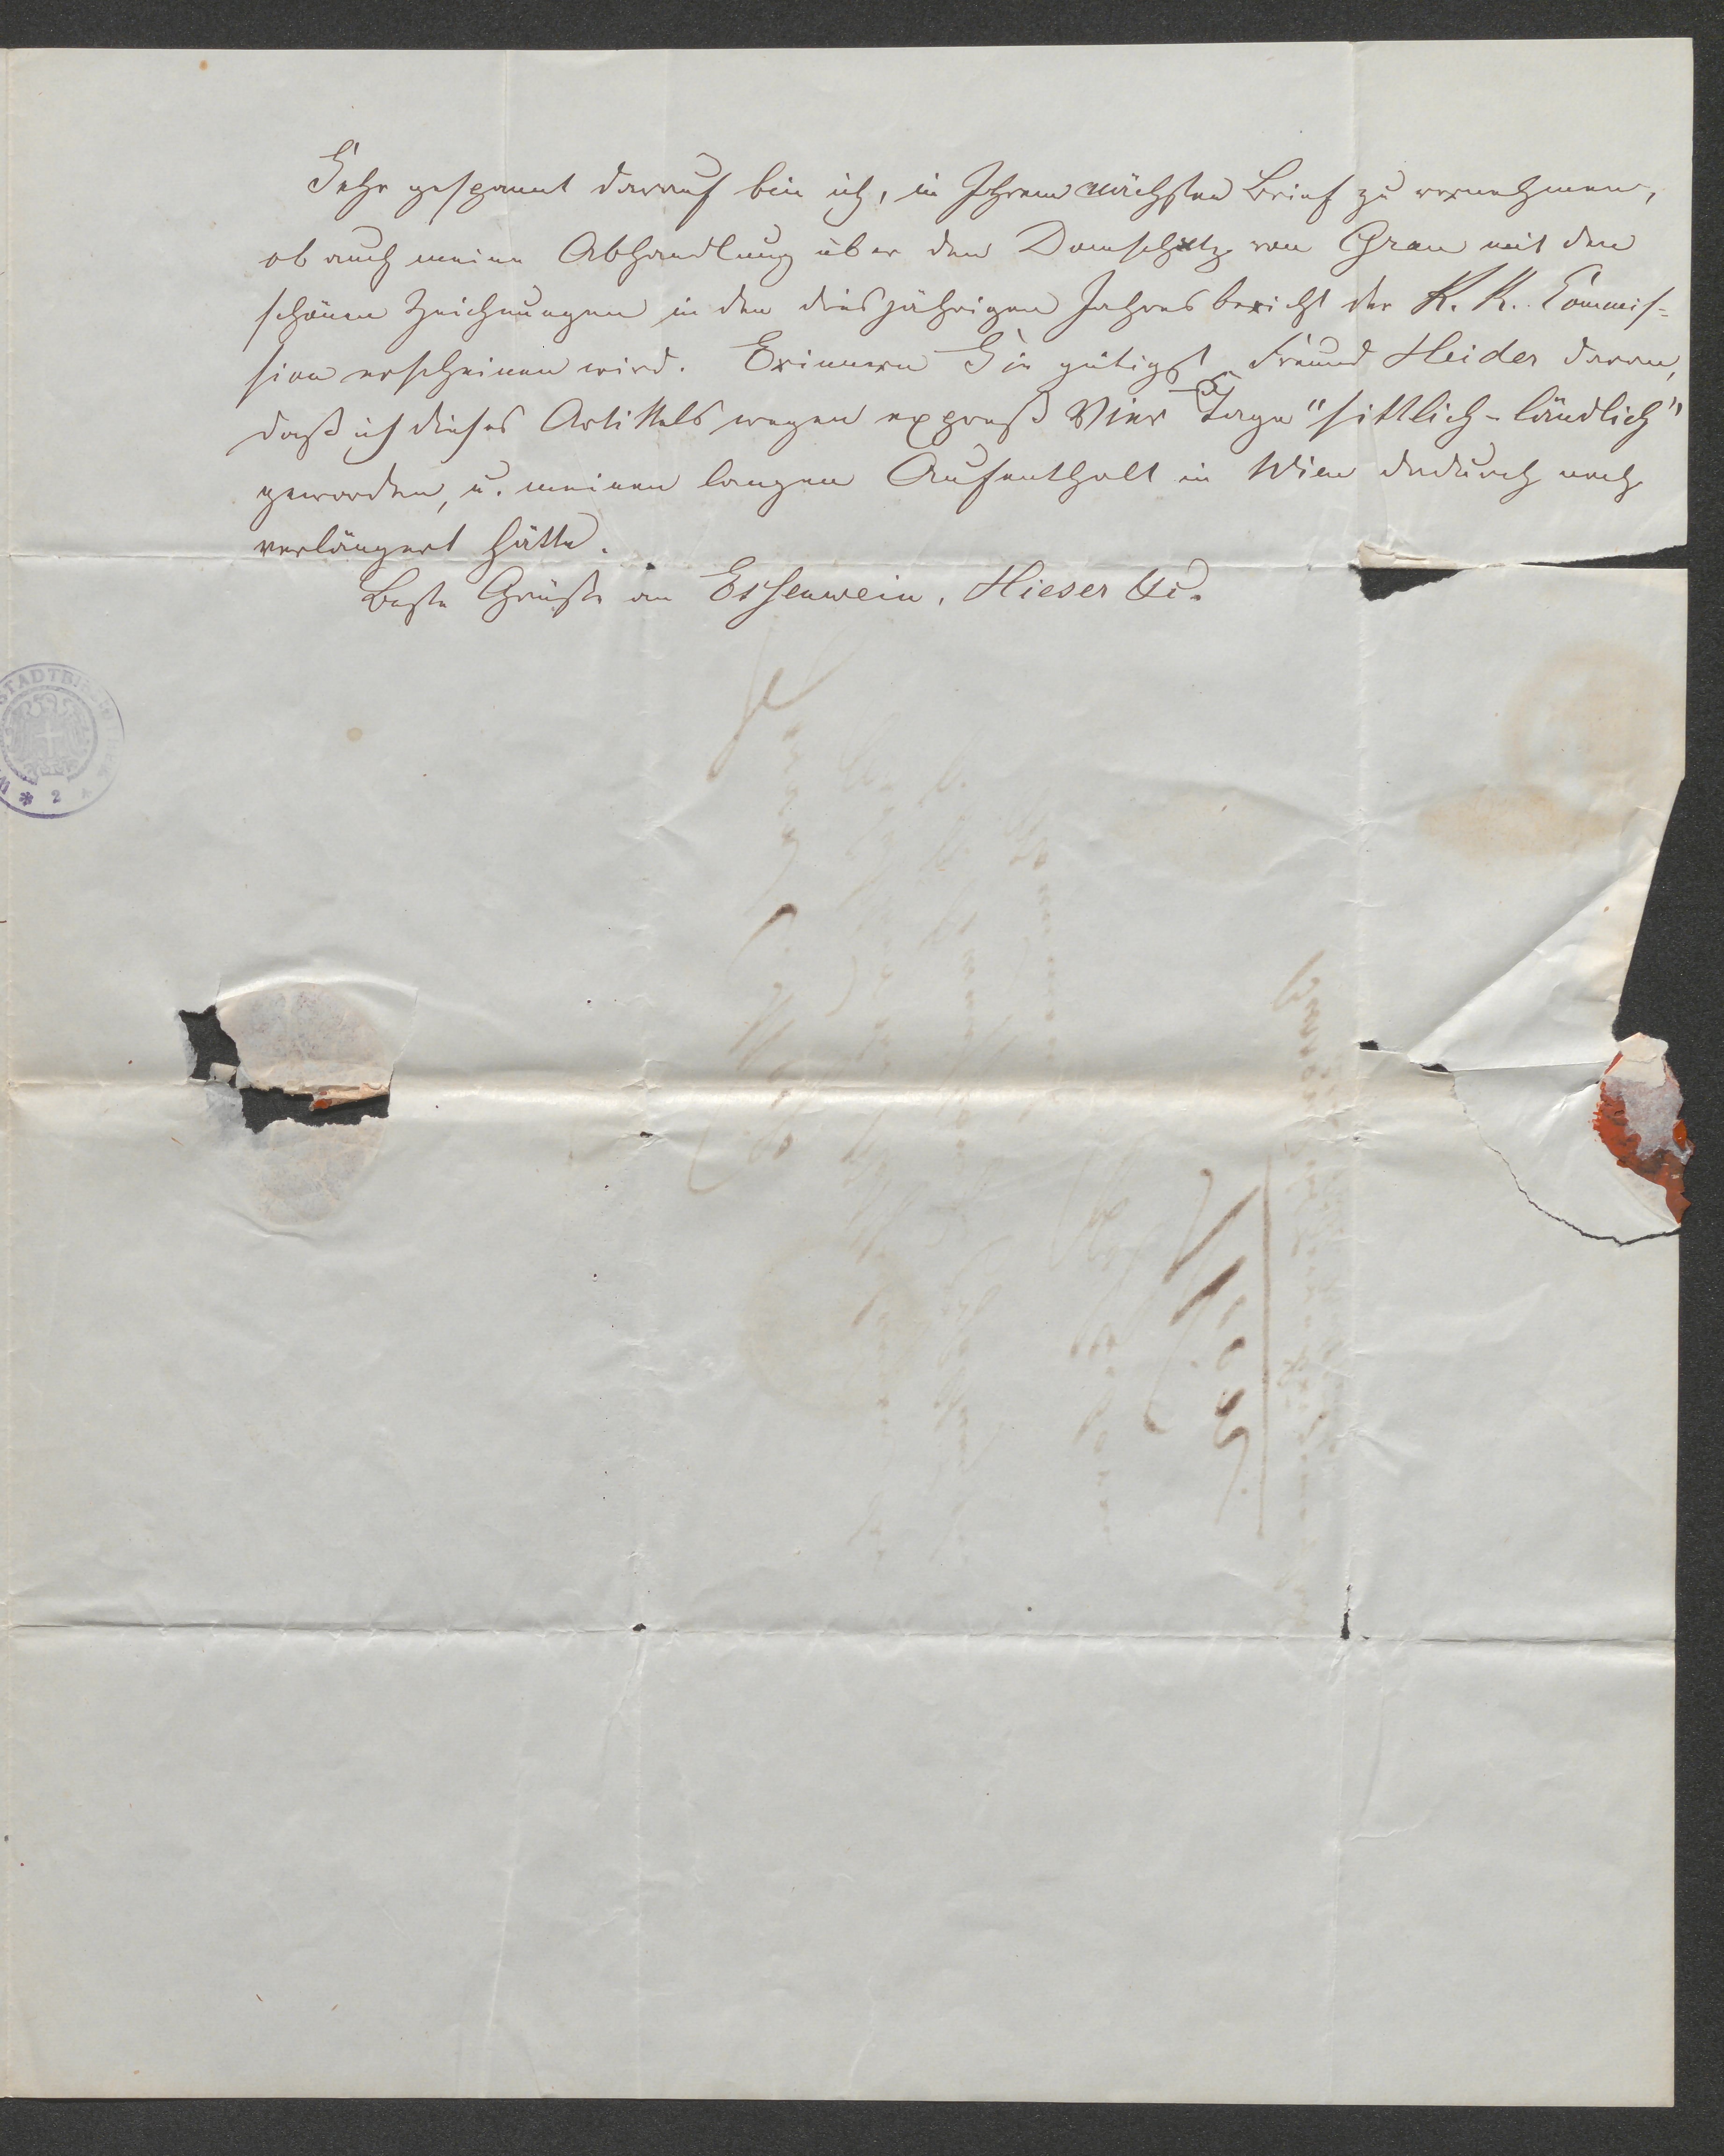 Sehr gespannt darauf bin ich, in Ihrem nächsten Brief zu vernehmen,
ob auch meine Abhandlung über den Domschatz von Gran mit den
schönen Zeichnungen in den diesjährigen Jahresbericht der K. K. Commis-
sion erscheinen wird. Erinnern Sie gütigst Freund Heider daran,
daß ich dieses Artikels wegen expreß Vier Tage "sittlich-ländlich"
geworden, u. meinen langen Aufenthalt in Wien dadurch noch
verlängert hätte.
Beste Grüße an Essenwein, Hieser &c.
STADTBIB
2